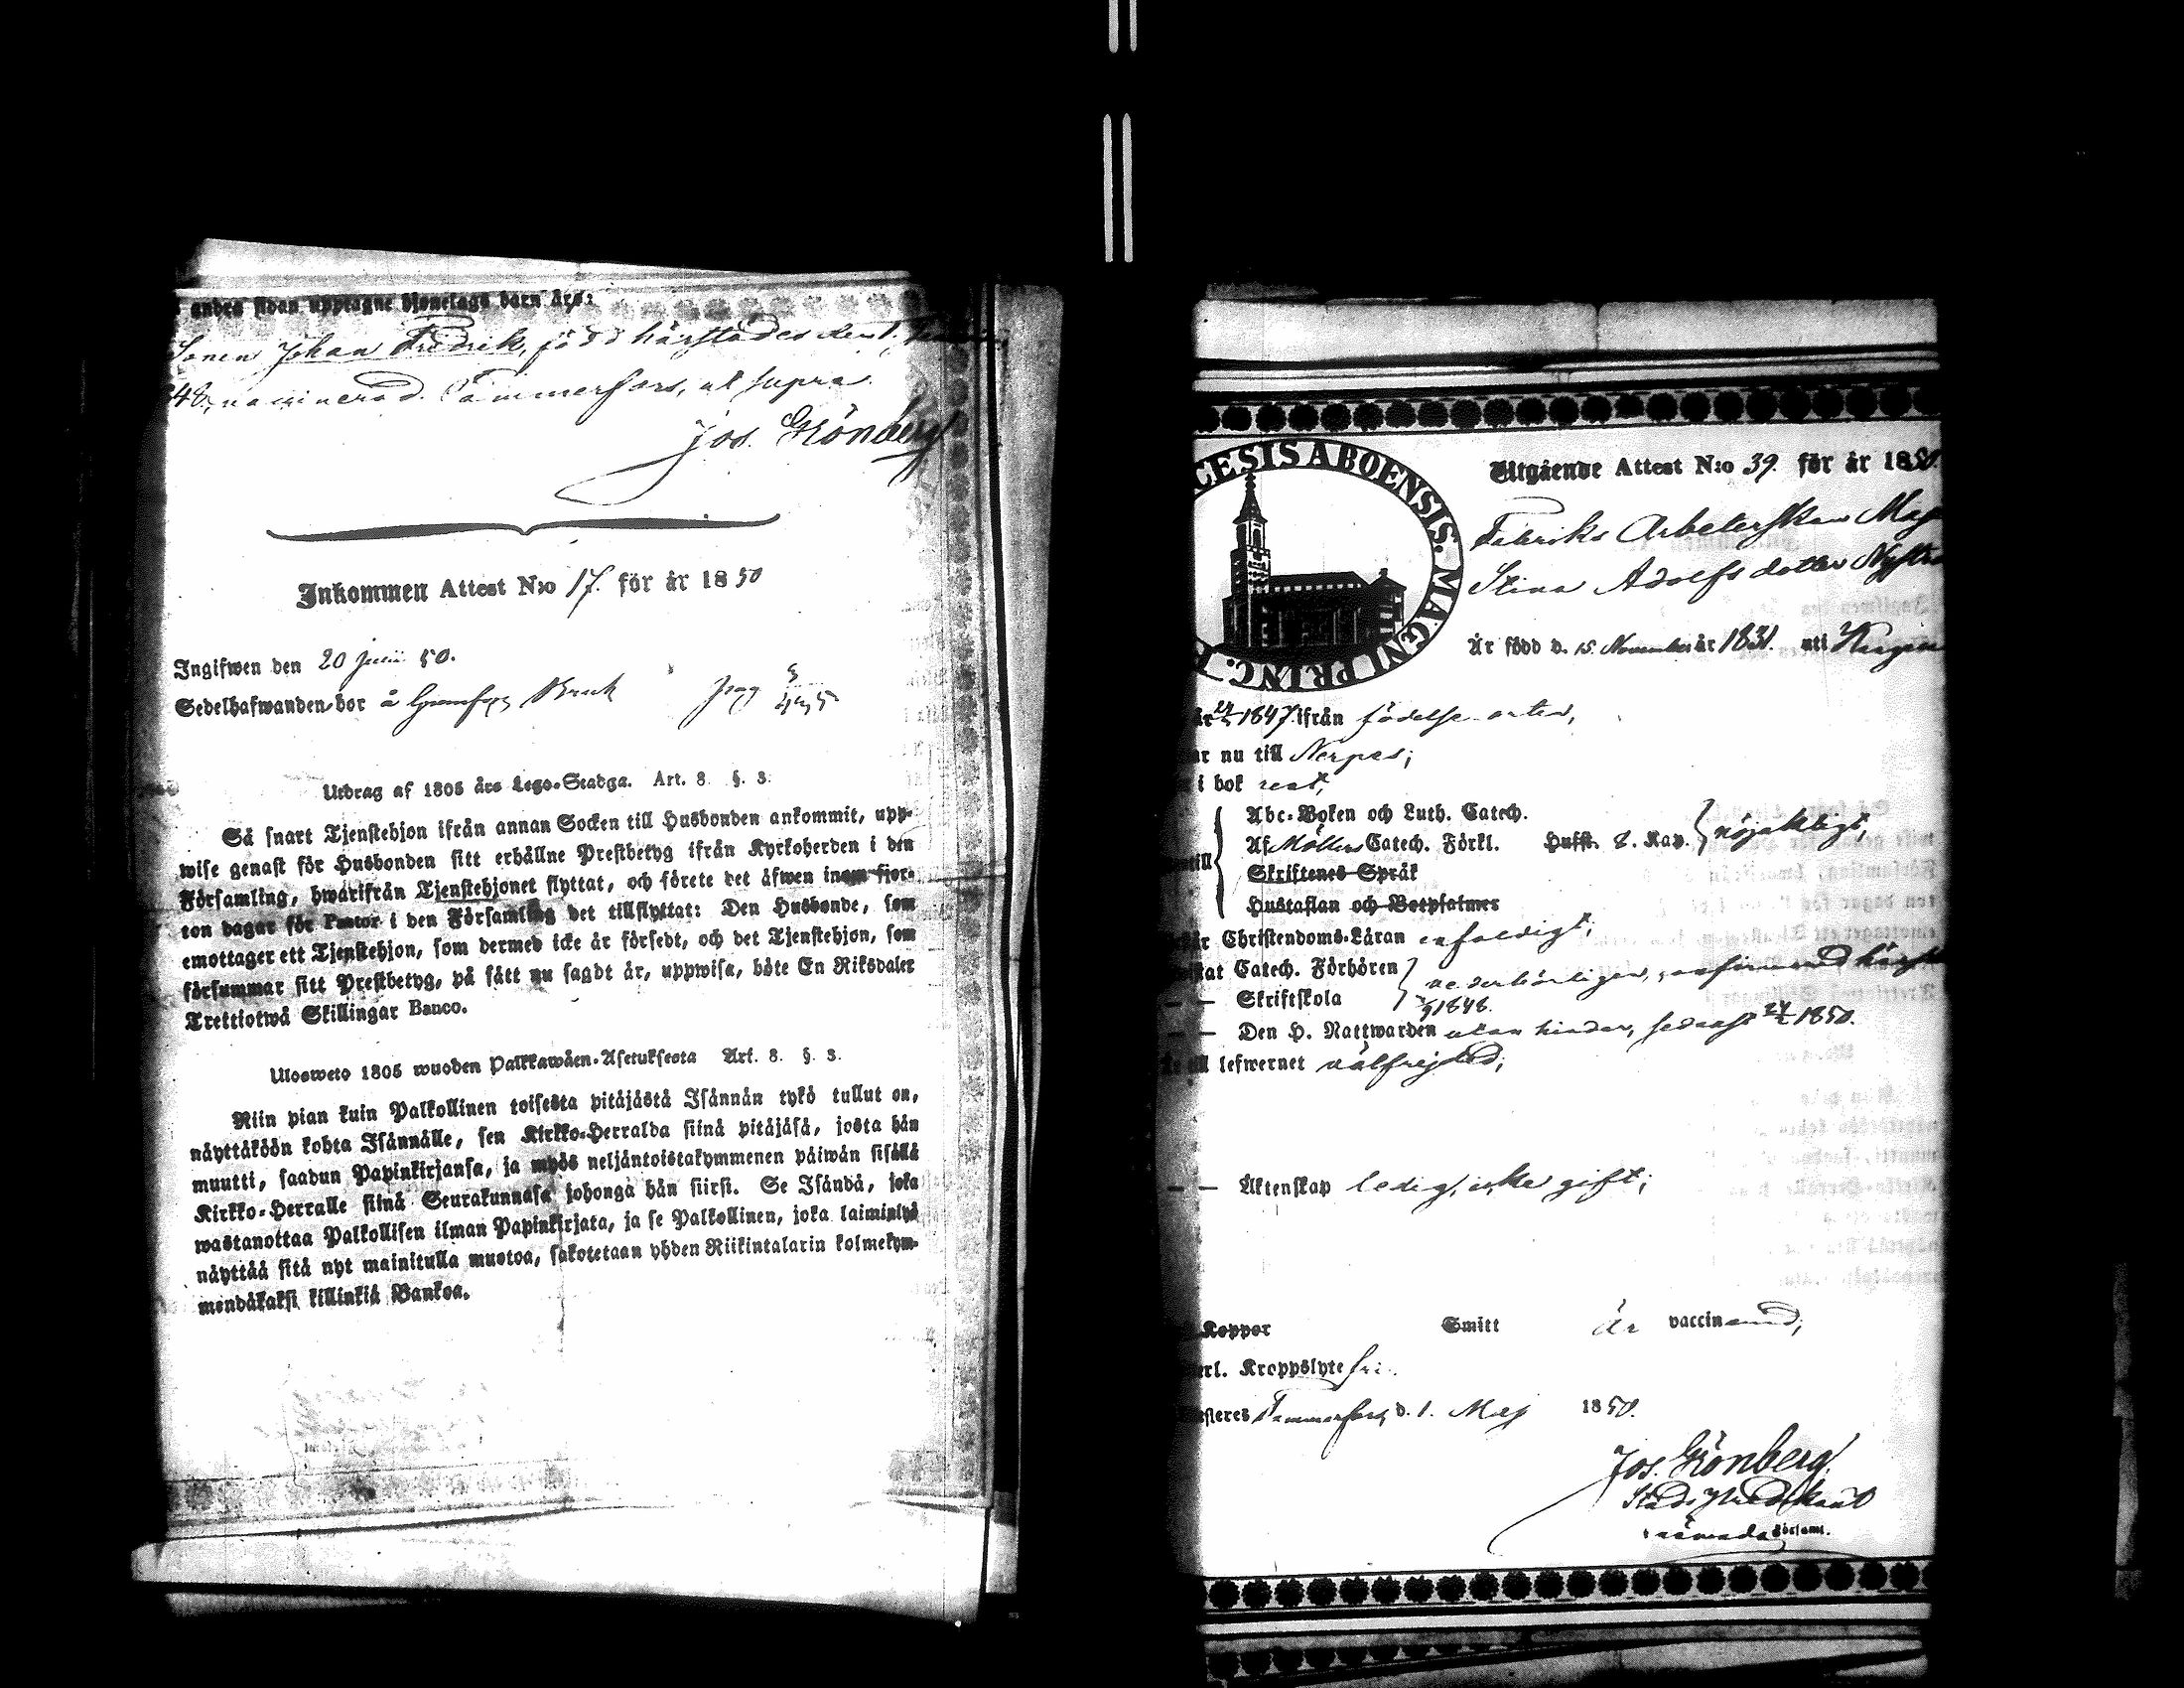 andra sidan upptagne hjonelags barn äro:
Sonen Johan Fredrik, född härstädes den 1.
48, vaccinerad. Tammerfors, ut supra.
Jos. Grönberg
Inkommen Attest N:o 17. för år 1850
Ingifwen den 20 Juni 50.
Sedelhafwanden bor å Bruk pag
Utdrag af 1805 års Lego-Stadga. Art. 8. §. 3.
Så snart Tjenstehjon ifrån annan Socken till Husbonden ankommit, upp-
wise genast för Husbonden sitt erhållne Prestbetyg ifrån Kyrkoherden i den
Församling, hwarifrån Tjenstehjonet flyttat, och förete det äfwen inom fjor-
ton dagar för Pastor i den Församling det tillflyttat: Den Husbonde, som
emottager ett Tjenstehjon, som dermed icke är försedt, och det Tjenstehjon, som
försummar sitt Prestbetyg, på sätt nu sagdt är, uppwisa, böte En Riksdaler
Trettiotwå Skillingar Banco.
Ulosweto 1805 wuoden Palkkawäen-Asetuksesta Art. 8. §. 3.
Niin pian kuin Palkollinen toisesta pitäjästä Isännän tykö tullut on,
näyttäköön kohta Isännälle, sen Kirkko-Herralda siinä pitäjäsä, josta hän
muutti, saadun Papinkirjansa, ja myös neljäntoistakymmenen päiwän sisällä
Kirkko-Herralle siinä Seurakunnasa johonga hän siirsi. Se Isändä, joka
wastanottaa Palkollisen ilman Papinkirjata, ja se Palkollinen, joka laiminlyö
näyttää sitä nyt mainitulla muotoa, sakotetaan yhden Riikintalarin kolmekym-
mendäkaksi killinkiä Bankoa.
CESIS ABOENSIS. MAGNI PRINC.
Utgående Attest N:o 39. för år 1850.
Fabriks Arbeterskan Maja
Stina Adolfs dotter
Är född d. 15. November år 1831. uti
år 1847 ifrån födelse orten,
ar nu till Nerpes;
i bok rent,
Abc-Boken och Luth. Catech.
Af Möllers Catech. Förkl. Husst. 8. Kap. nöjaktigt,
till
Skriftenes Språk
Hustaflan och Botpsalmer
Christendoms-Läran enfaldigt;
Catech. Förhören vederbörligen,
— — Skriftskola 1848.
— — Den H. Nattwarden utan hinder, sedanst 1850.
till lefwernet välfrejdad;
— — Äktenskap ledig, icke gift;
Koppor Smitt är vaccinerad;
erl. Kroppslyte fri.
Tammerfors d. 1. Maj 1850.
Jos. Grönberg
Stads Predikant